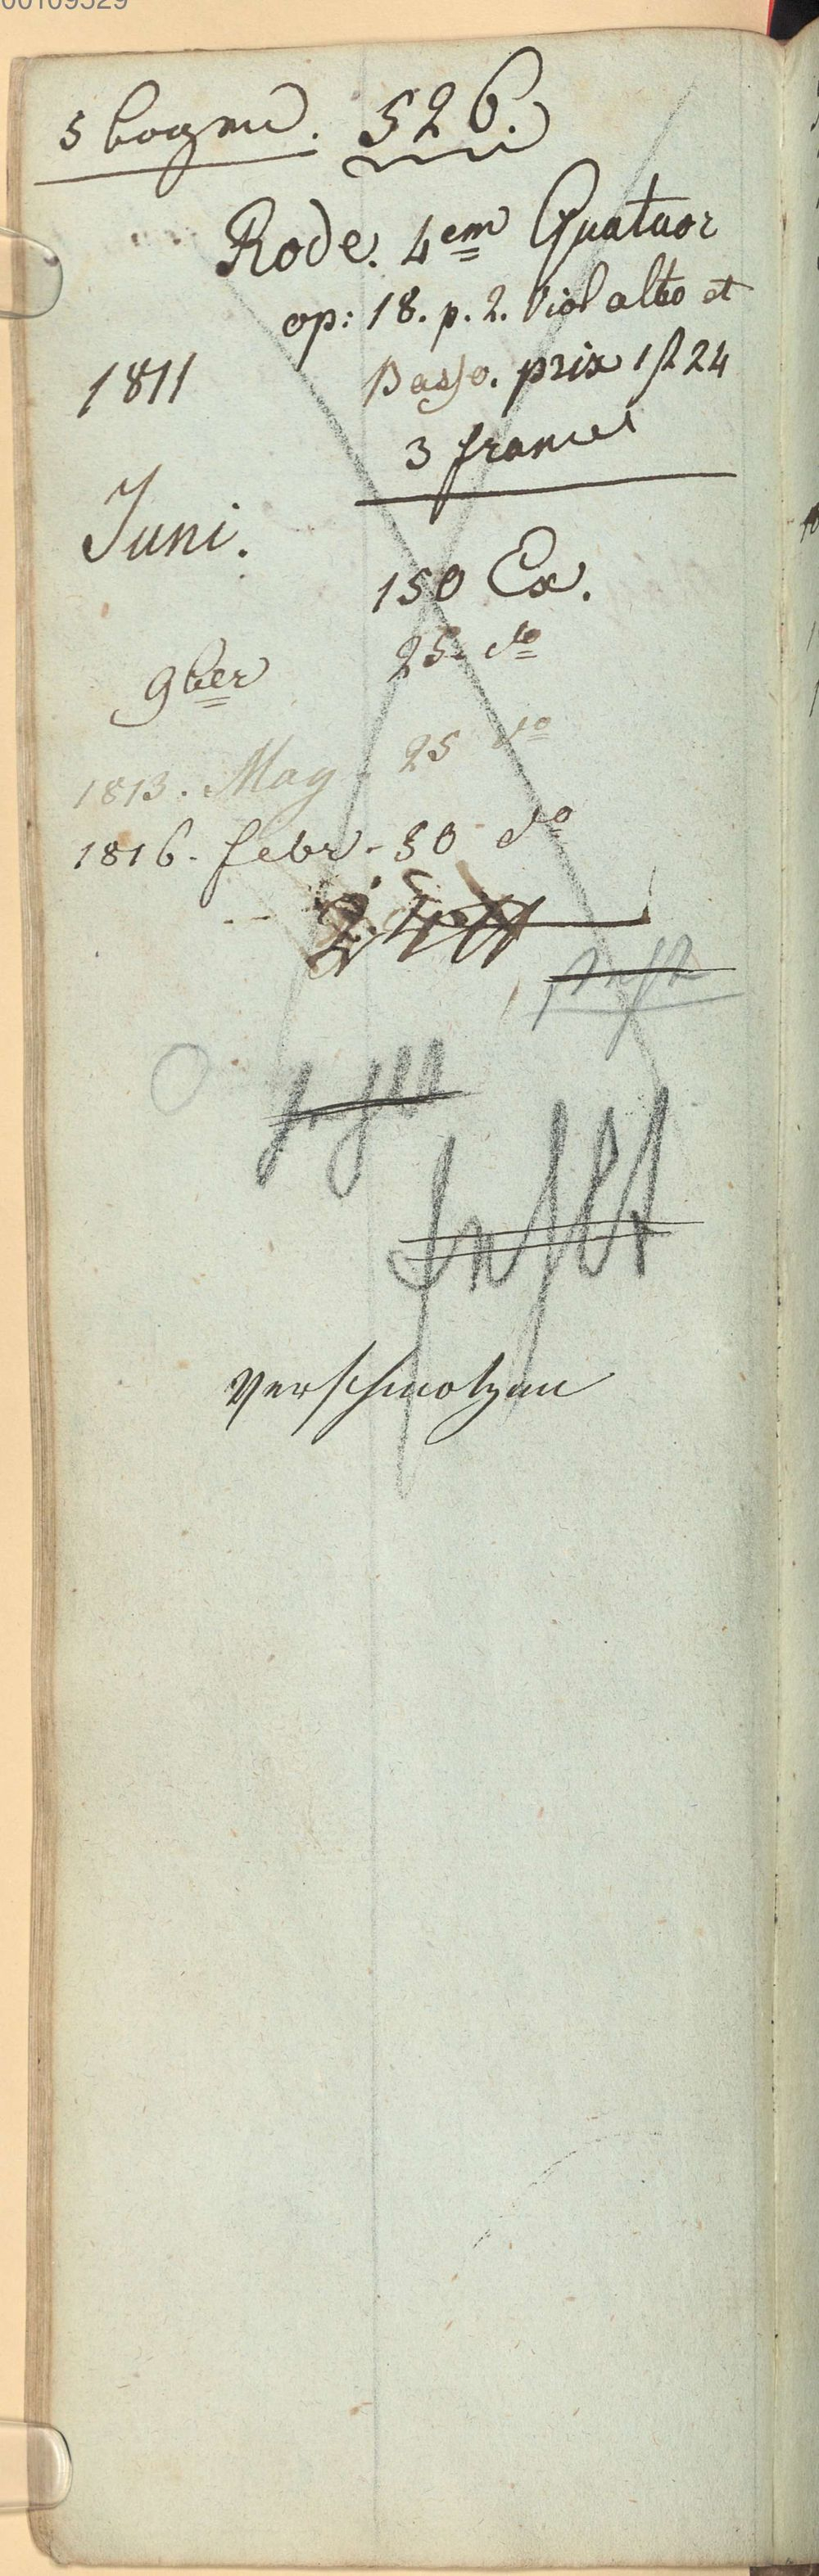 00109529
5 bogen. 526.
Rode. 4em Quatuor
op: 18. p. 2. Viol alto et
1811 Basso. prix 1 fl 24
3 francs
Juni.
150 Ex.
9ber 25 do
1813. May 25 do
1816. febr. 50 do
verschmolzen